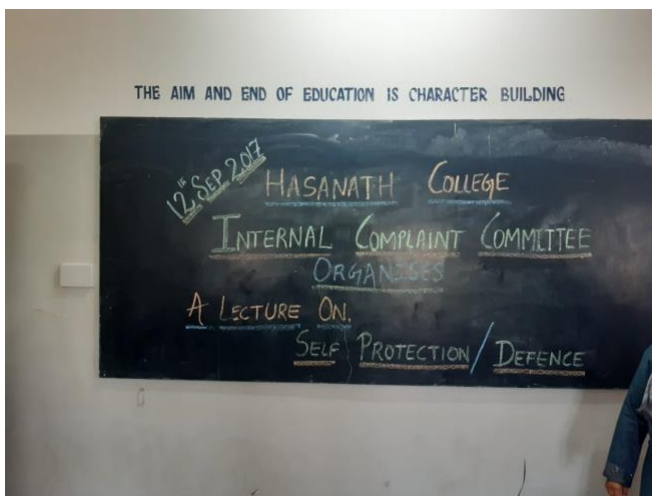 THE AIM AND END OF EDUCATION IS CHARACTER BUILDING
12th SEP 2017
HASANATH COLLEGE
INTERNAL COMPLAINT COMMITTEE
ORGANISES
A LECTURE ON.
SELF PROTECTION / DEFENCE